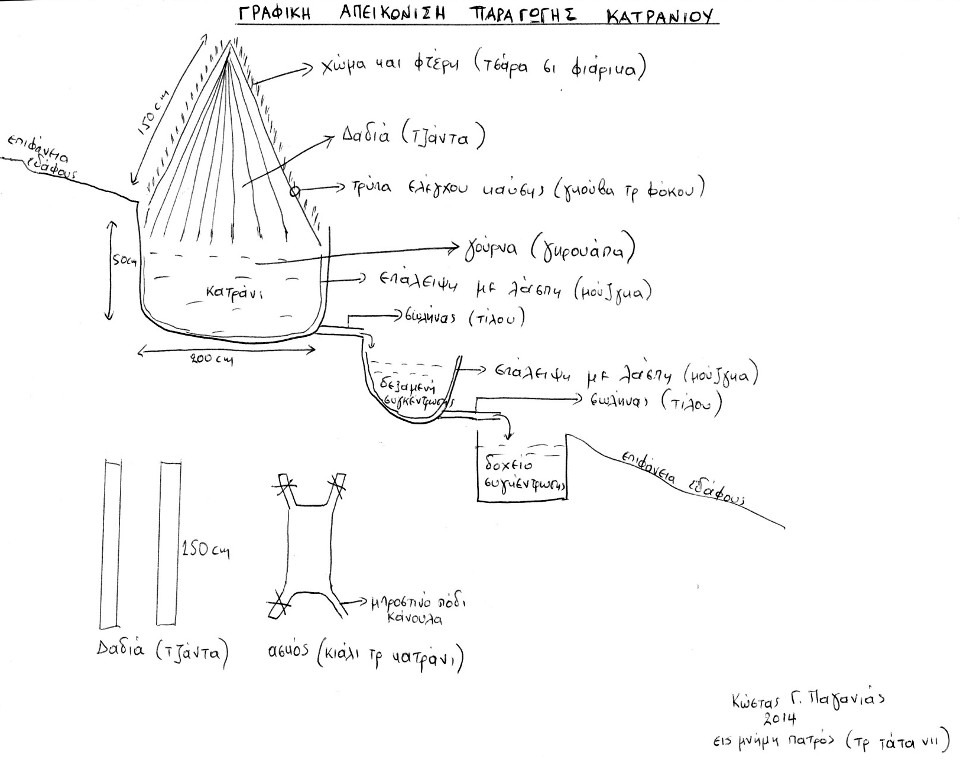 ΓΡΑΦΙΚΗ ΑΠΕΙΚΟΝΙΣΗ ΠΑΡΑΓΩΓΗΣ ΚΑΤΡΑΝΙΟΥ
χώμα και φτέρη (τσάρα σι φιάρικα)
150 cm
Δαδιά (τζάντα)
επιφάνεια
εδάφους
τρύπα ελέγχου καύσης (γκούβα τρ φόκου)
γούρνα (γκρουάπα)
50cm
κατράνι
επάλειψη με λάσπη (μούζγκα)
σωλήνας (τίλου)
200 cm
επάλειψη με λάσπη (μούζγκα)
δεξαμενή
συγκέντρωσης
σωλήνας (τίλου)
δοχείο
συγκέντρωσης
επιφάνεια εδάφους
150 cm
μπροστινό πόδι
κάνουλα
Δαδιά (τζάντα)
ασκός (κιάλι τρ κατράνι)
Κώστας Γ. Παγανιάς
2014
εις μνήμη πατρός (τρ τάτα νιι)